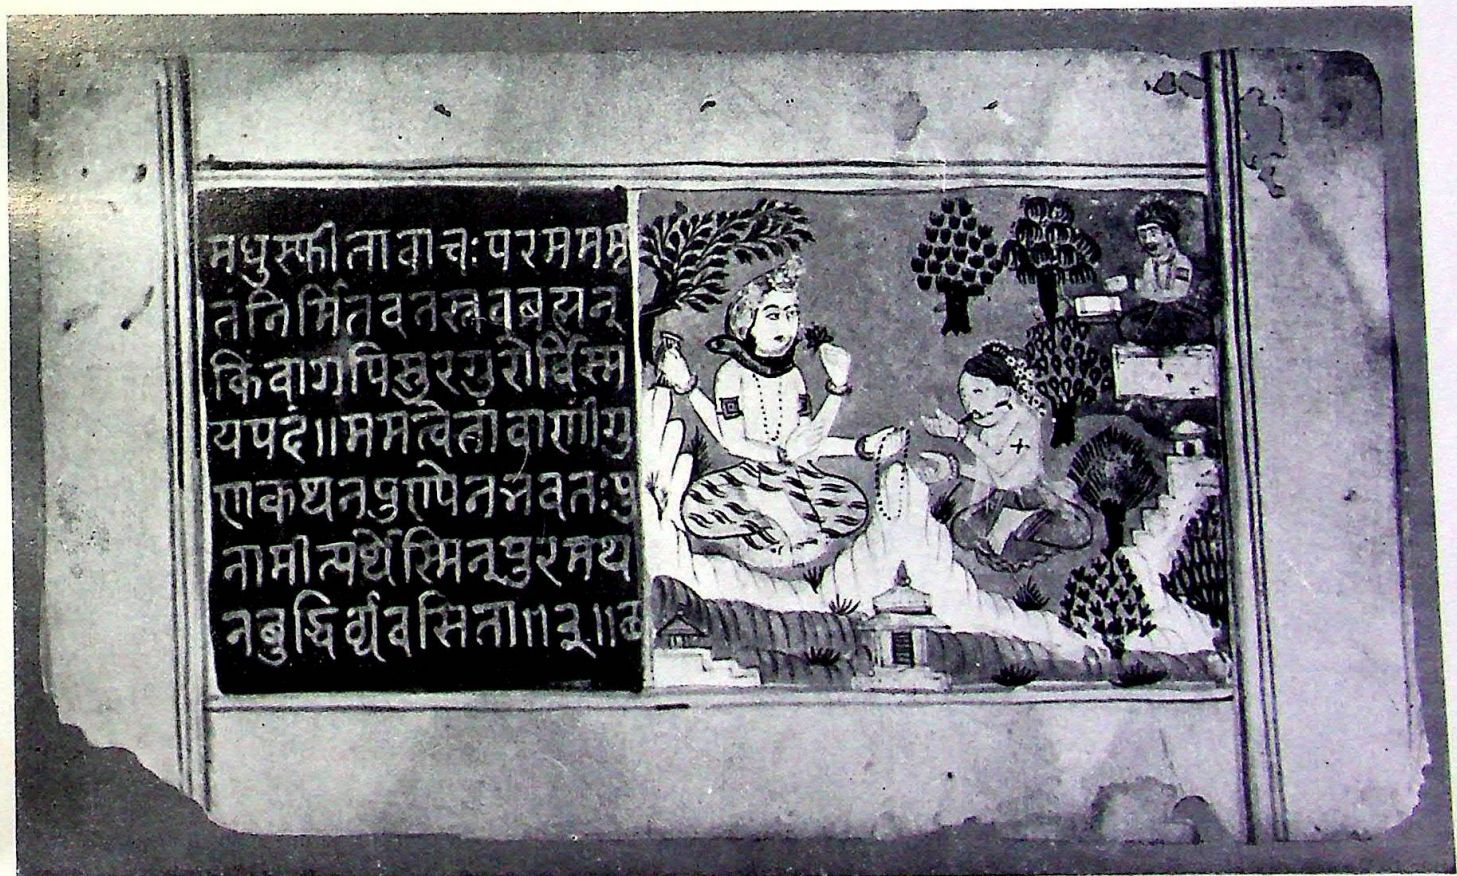 मधुस्फीतावाचःपरमममृ
तनिर्मितवतस्तवब्रह्मन्
किंवागपिसुरगुरोर्विस्म
यपदं॥ममत्वेतांवाणींगु
णकथनपुण्येनभवतःपु
नामीत्यर्थेस्मिन्पुरमथ
नबुद्धिर्व्यवसिता॥३॥